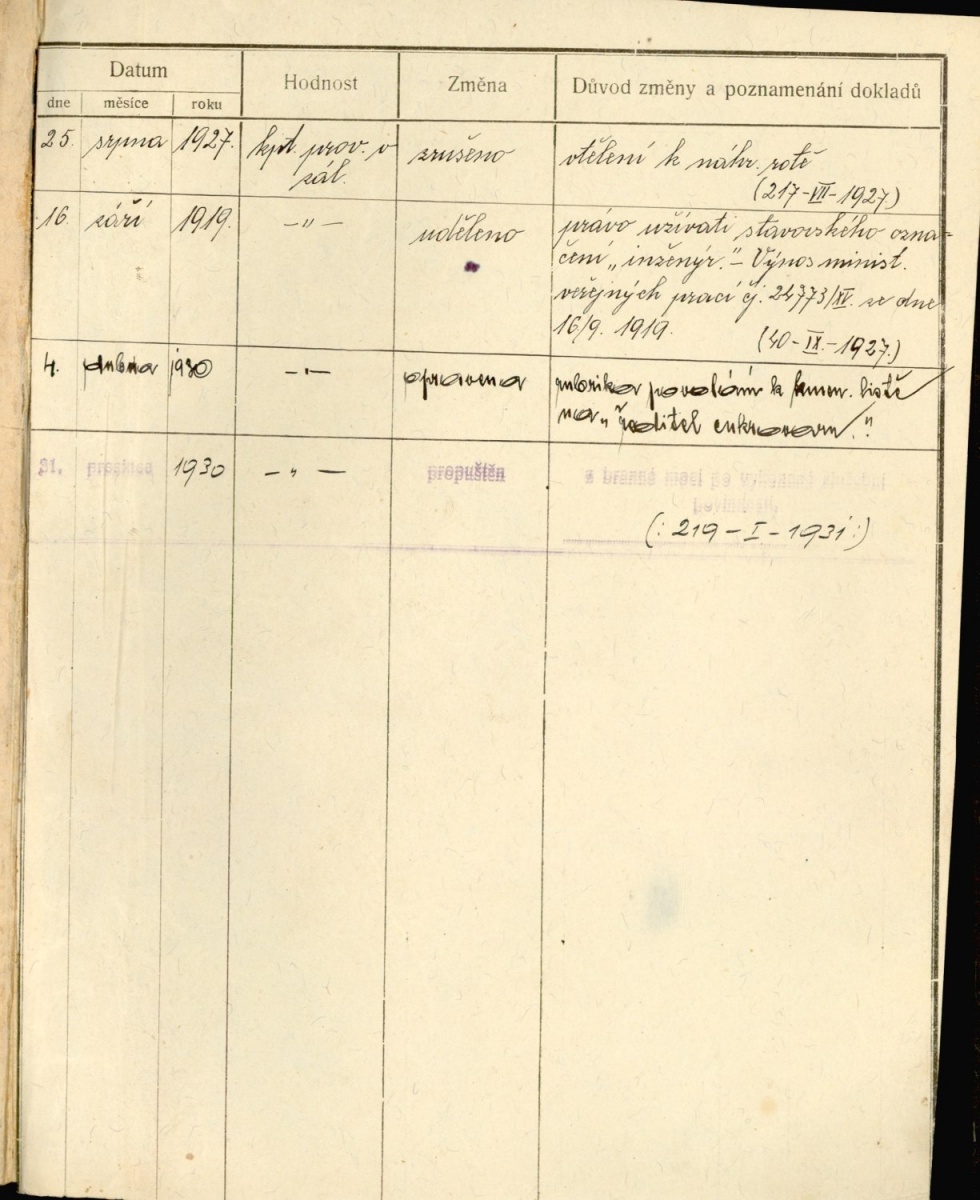 Datum Hodnost Změna Důvod změny a poznamenání dokladů
dne měsíce roku
25. srpna 1927. kpt. prov. v zrušeno vtělení k náhr. rotě
zál. (217-VII-1927)
16. září 1919. -"- uděleno právo užívati stavovského ozna-
čení „inženýr." – Výnos minist.
veřejných prací čj. 24773/XV. ze dne
16/9. 1919. (40-IX.-1927.)
4. dubna 1930 -"- opravena rubrika povolání k kmen. listě
na „ředitel cukrovaru."
31. prosince 1930 -"- propuštěn z branné moci po vykonané služební
povinnosti.
(: 219-I-1931 :)